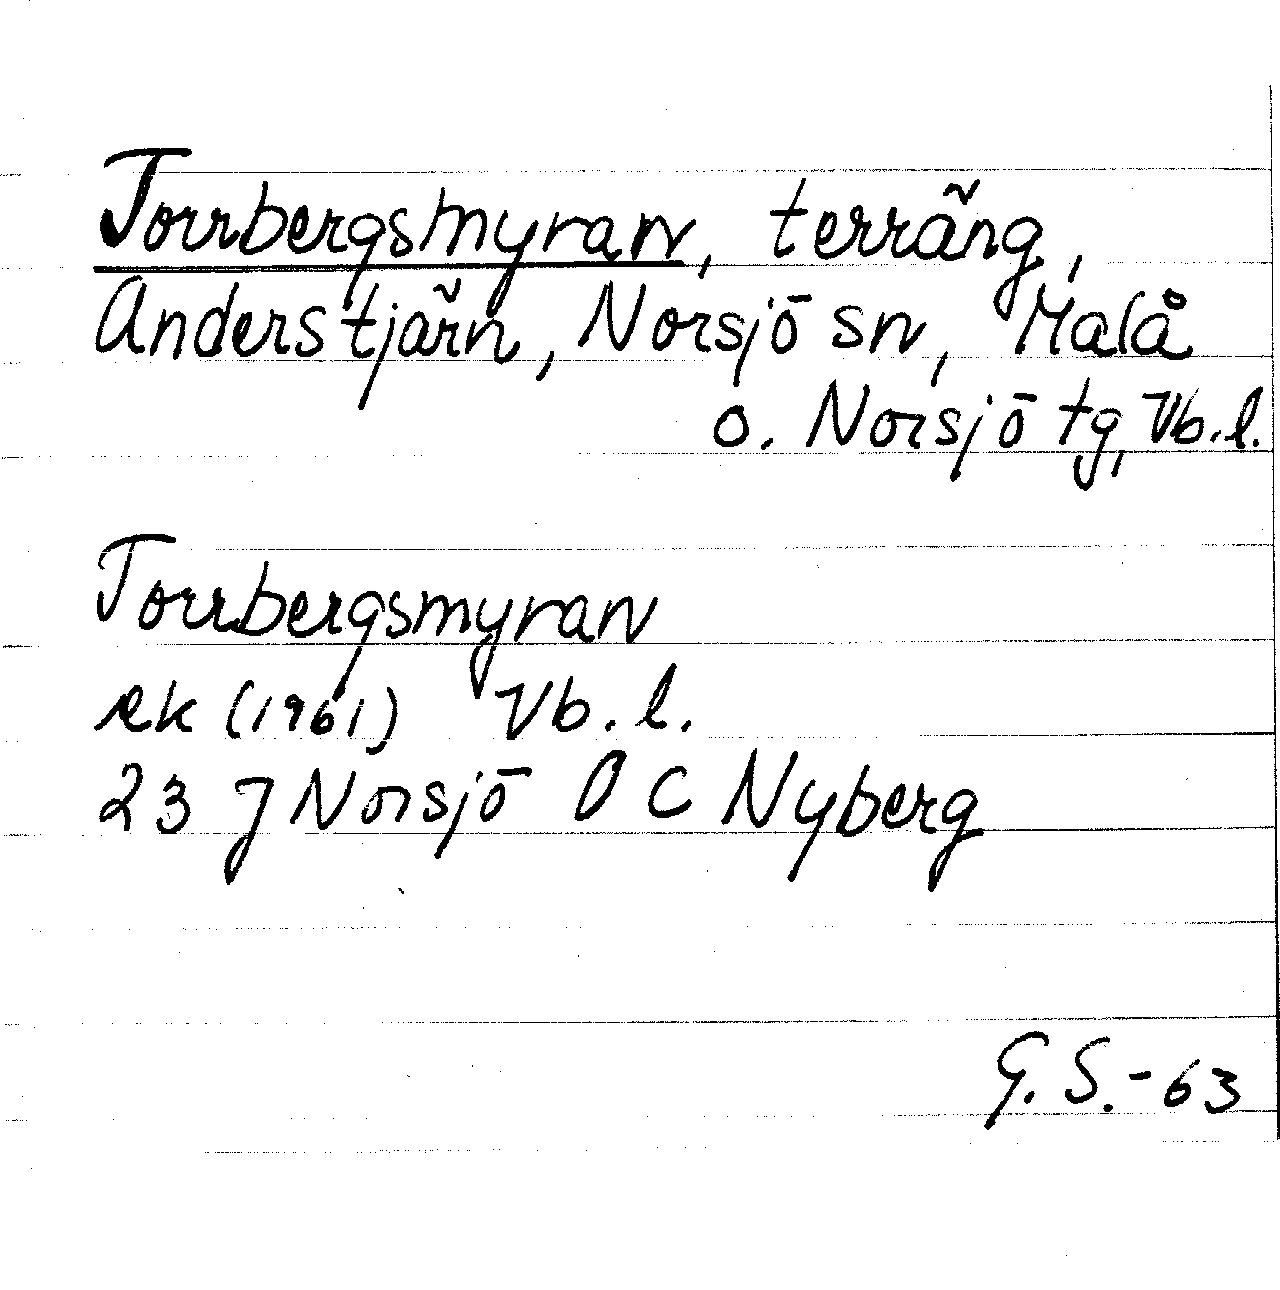 Torrbergsmyran, terräng,
Anderstjärn, Norsjö sn, Malå
o. Norsjö tg, Vb.l.
Torrbergsmyran
ek (1961) Vb.l.
23 J Norsjö O C Nyberg
G.S.-63